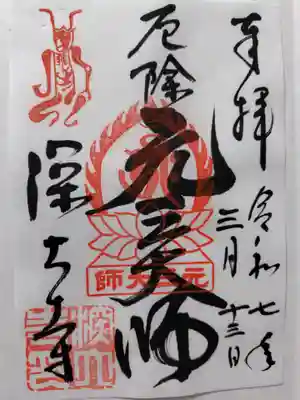 奉拝
令和七年
三月十三日
厄除
元三大師
元三大師
深大寺
深大寺